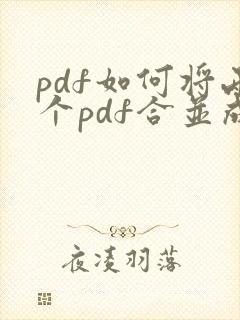 pdf如何将两
个pdf合并成
夜凌羽落